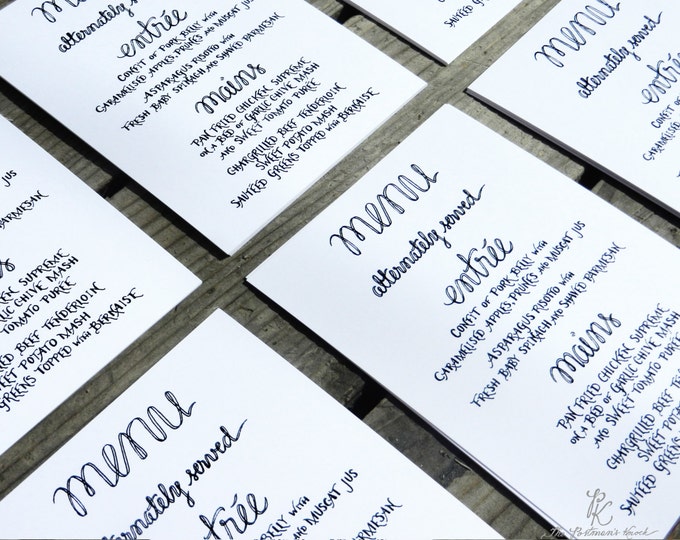 menu
alternately served
entrée
CONFIT OF PORK BELLY WITH
CARAMELISED APPLES, PRUNES AND MUSCAT JUS
ASPARAGUS RISOTTO WITH
FRESH BABY SPINACH AND SHAVED PARMESAN
mains
PAN FRIED CHICKEN SUPREME
ON A BED OF GARLIC CHIVE MASH
AND SWEET TOMATO PUREE
CHARGRILLED BEEF TENDERLOIN
SWEET POTATO MASH
SAUTÉED GREENS TOPPED WITH BERNAISE
menu
alternately served
entrée
CONFIT OF PORK BELLY WITH
CARAMELISED APPLES, PRUNES AND
ASPARAGUS RISOTTO
FRESH BABY SPINACH AND
JUS
PARMESAN
CHICKEN SUPREME
GARLIC CHIVE MASH
TOMATO PUREE
BEEF TENDERLOIN
SWEET POTATO MASH
GREENS TOPPED WITH BERNAISE
menu
alternately served
entrée
CONFIT OF PORK BELLY WITH
CARAMELISED APPLES, PRUNES AND MUSCAT JUS
ASPARAGUS RISOTTO WITH
FRESH BABY SPINACH AND SHAVED PARMESAN
mains
PAN FRIED CHICKEN SUPREME
ON A BED OF GARLIC CHIVE MASH
AND SWEET TOMATO
CHARGRILLED BEEF
SWEET POTATO
SAUTÉED GREENS
menu
alternately served
entrée
BELLY WITH
PRUNES AND MUSCAT JUS
WITH
PARMESAN
PK
The Postman's Knock